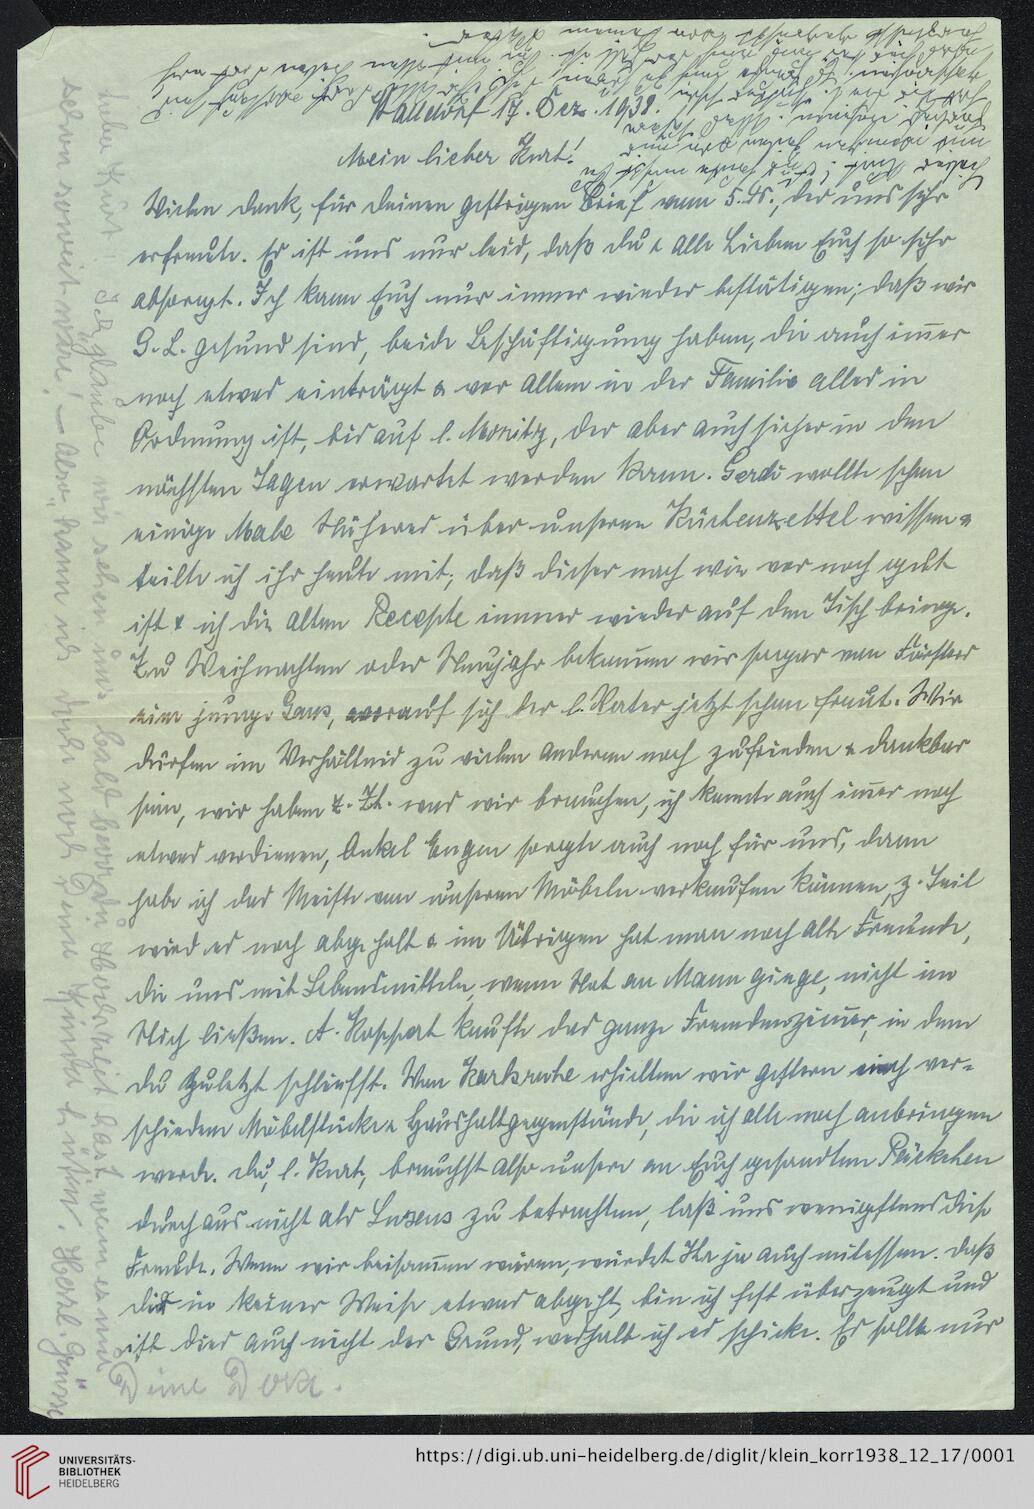 Walldorf 17. Dez. 1938.
Mein lieber Kurt!
Vielen Dank, für deinen gestrigen Brief vom 5. ds., der uns sehr
erfreute. Es ist uns nur leid, daß du & alle Lieben Euch so sehr
absorgt. Ich kann Euch nur immer wieder bestätigen, daß wir
G. L. gesund sind, beide Beschäftigung haben, die auch immer
noch etwas einträgt & vor allem in der Familie alles in
Ordnung ist, bis auf l. Moritz, der aber auch sicher in den
nächsten Tagen erwartet werden kann. Gerdi wollte schon
einige Male Näheres über unseren Küchenzettel wissen &
teilte ich ihr heute mit, daß dieser nach wie vor noch gut
ist & ich die alten Recepte immer wieder auf den Tisch bringe.
Zu Weihnachten oder Neujahr bekommen wir sogar von
eine junge Gans, worauf sich der l. Vater jetzt schon freut. Wir
dürfen im Verhältnis zu vielen anderen noch zufrieden & dankbar
sein, wir haben z. Zt. was wir brauchen, ich konnte auch immer noch
etwas verdienen, Onkel Eugen sorgte auch noch für uns, dann
habe ich das Meiste von unseren Möbeln verkaufen können, z. Teil
wird es noch abgeholt & im Übrigen hat man noch alte Freunde,
die uns mit Lebensmitteln, wenn Not an Mann ginge, nicht im
Stich ließen. A. Koppert kaufte das ganze Fremdenzimmer, in dem
du zuletzt schliefst. Von Karlsruhe erhielten wir gestern auch ver-
schiedene Möbelstücke & Haushaltgegenstände, die ich alle noch anbringen
werde. Du, l. Kurt, brauchst also unsere an Euch gesandten Päckchen
durchaus nicht als Luxus zu betrachten, laß uns wenigstens diese
Freude. Wenn wir beisammen wären, würdet Ihr ja auch mitessen. Daß
dir in keiner Weise etwas abgeht, bin ich fest überzeugt und
ist dies auch nicht der Grund, weshalb ich es schicke. Es sollte nur
Lieber Kurt! Ich glaube wir sehen uns bald bevor du Hochzeit hast, wenn es nur
schon soweit wäre! – Also, kann ich doch noch Deine Kinder hüten. Herzl. Grüsse
Deine Dora.
UNIVERSITÄTS-
BIBLIOTHEK
HEIDELBERG
https://digi.ub.uni-heidelberg.de/diglit/klein_korr1938_12_17/0001